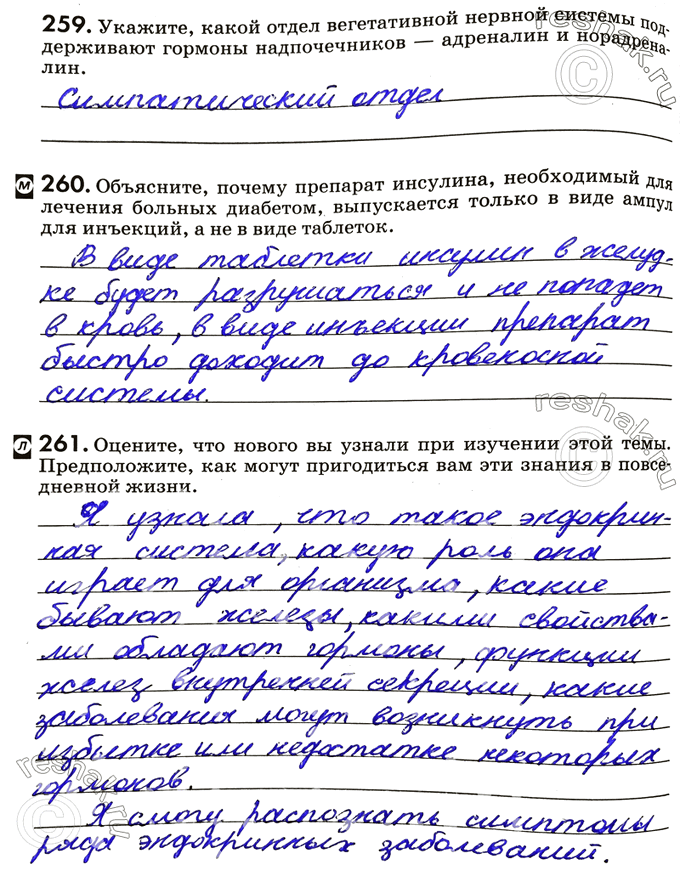 259. Укажите, какой отдел вегетативной нервной системы под-
держивают гормоны надпочечников — адреналин и норадрена-
лин.
Симпатический отдел
М 260. Объясните, почему препарат инсулина, необходимый для
лечения больных диабетом, выпускается только в виде ампул
для инъекций, а не в виде таблеток.
В виде таблетки инсулин в желуд-
ке будет разрушаться и не попадет
в кровь, в виде инъекции препарат
быстро доходит до кровеносной
системы.
Л 261. Оцените, что нового вы узнали при изучении этой темы.
Предположите, как могут пригодиться вам эти знания в повсе-
дневной жизни.
Я узнала, что такое эндокрин-
ная система, какую роль она
играет для организма, какие
бывают железы, какими свойства-
ми обладают гормоны, функции
желез внутренней секреции, какие
заболевания могут возникнуть при
избытке или недостатке некоторых
гормонов.
Я смогу распознать симптомы
ряда эндокринных заболеваний.
reshak.ru
reshak.ru
reshak.ru